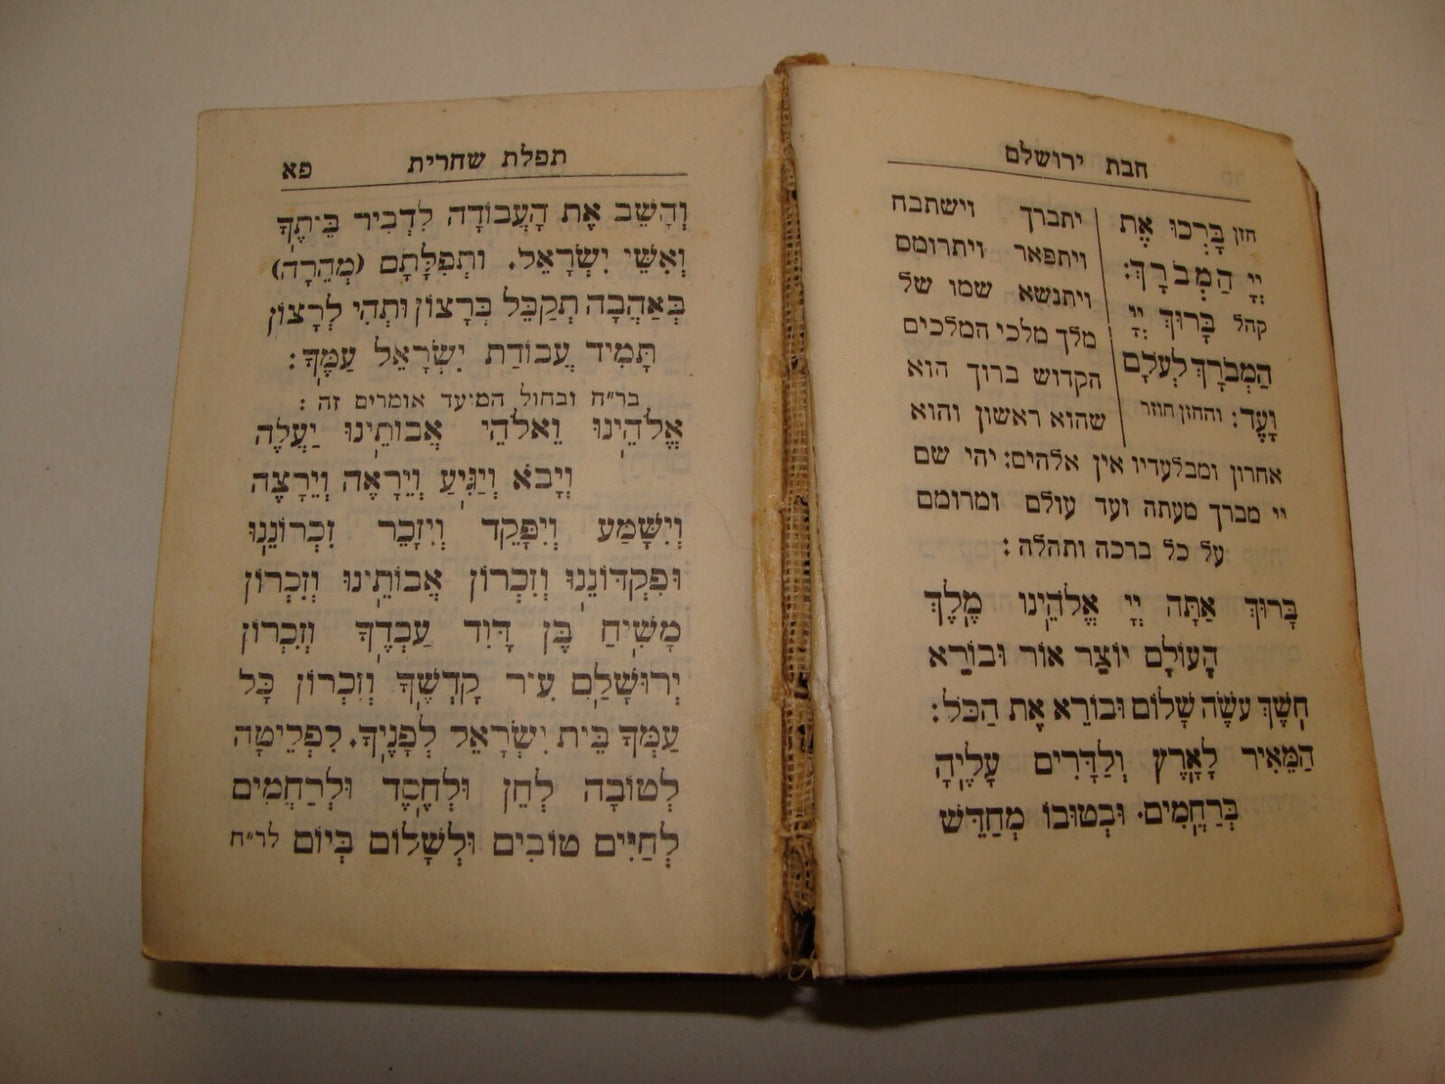 חבת ירושלם
חזן בָּרְכוּ אֶת
יְיָ הַמְבֹרָךְ:
קהל בָּרוּךְ יְיָ
הַמְבֹרָךְ לְעֹלָם
וָעֶד: והחזן חוזר
יתברך וישתבח
ויתפאר ויתרומם
ויתנשא שמו של
מלך מלכי המלכים
הקדוש ברוך הוא
שהוא ראשון והוא
אחרון ומבלעדיו אין אלהים: יהי שם
יי מברך מעתה ועד עולם ומרומם
על כל ברכה ותהלה:
בָּרוּךְ אַתָּה יְיָ אֱלֹהֵינוּ מֶלֶךְ
הָעוֹלָם יוֹצֵר אוֹר וּבוֹרֵא
חֹשֶׁךְ עֹשֶׂה שָׁלוֹם וּבוֹרֵא אֶת הַכֹּל:
הַמֵּאִיר לָאָרֶץ וְלַדָּרִים עָלֶיהָ
בְּרַחֲמִים. וּבְטוּבוֹ מְחַדֵּשׁ
תפלת שחרית פא
וְהָשֵׁב אֶת הָעֲבוֹדָה לִדְבִיר בֵּיתֶךָ
וְאִשֵּׁי יִשְׂרָאֵל. וּתְפִלָּתָם (מְהֵרָה)
בְּאַהֲבָה תְקַבֵּל בְּרָצוֹן וּתְהִי לְרָצוֹן
תָּמִיד עֲבוֹדַת יִשְׂרָאֵל עַמֶּךָ:
בר״ח ובחול המועד אומרים זה:
אֱלֹהֵינוּ וֵאלֹהֵי אֲבוֹתֵינוּ יַעֲלֶה
וְיָבֹא וְיַגִּיעַ וְיֵרָאֶה וְיֵרָצֶה
וְיִשָּׁמַע וְיִפָּקֵד וְיִזָּכֵר זִכְרוֹנֵנוּ
וּפִקְדוֹנֵנוּ וְזִכְרוֹן אֲבוֹתֵינוּ וְזִכְרוֹן
מָשִׁיחַ בֶּן דָּוִד עַבְדֶּךָ וְזִכְרוֹן
יְרוּשָׁלַםִ עִיר קָדְשֶׁךָ וְזִכְרוֹן כָּל
עַמְּךָ בֵּית יִשְׂרָאֵל לְפָנֶיךָ. לִפְלֵיטָה
לְטוֹבָה לְחֵן וּלְחֶסֶד וּלְרַחֲמִים
לְחַיִּים טוֹבִים וּלְשָׁלוֹם בְּיוֹם לר״ח